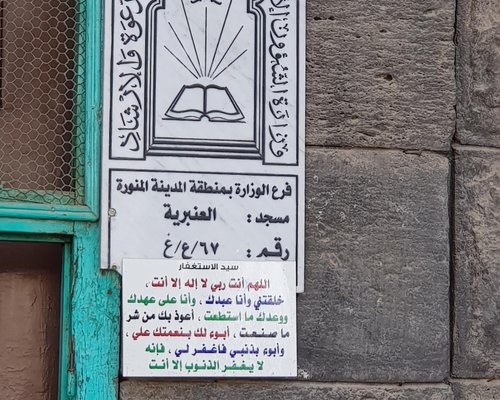 وزارة الشؤون الإ
دعوة والإرشاد
فرع الوزارة بمنطقة المدينة المنورة
مسجد : العنبرية
رقم : ٦٧/ع/غ
سيد الاستغفار
اللهم أنت ربي لا إله إلا أنت ،
خلقتني وأنا عبدك ، وأنا على عهدك
ووعدك ما استطعت ، أعوذ بك من شر
ما صنعت ، أبوء لك بنعمتك علي ،
وأبوء بذنبي فاغفر لي ، فإنه
لا يغفر الذنوب إلا أنت